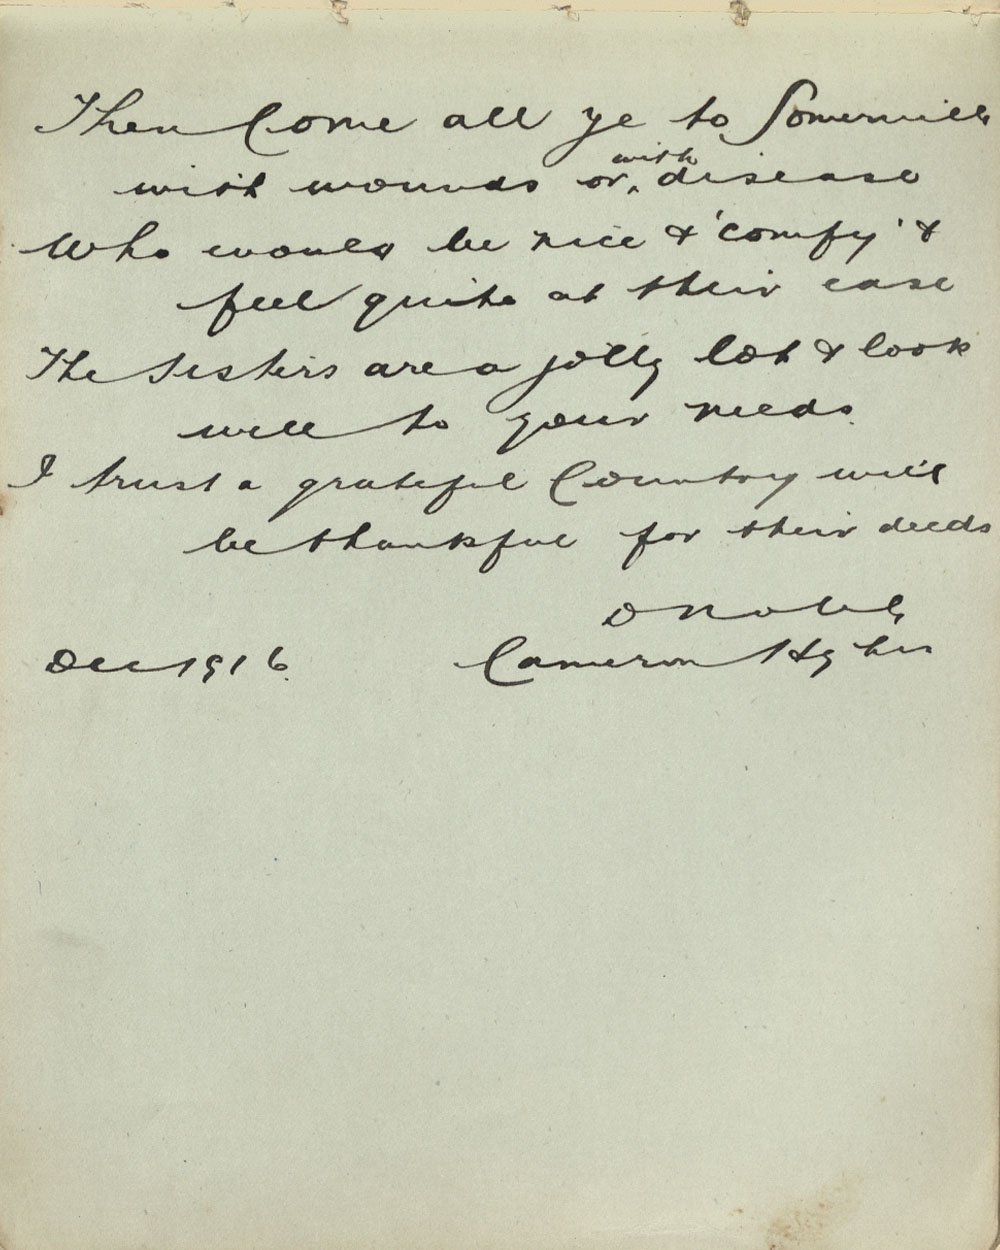 Then Come all ye to Somerville
with wounds or with disease
Who would be nice & 'comfy' &
feel quite at their ease
The Sisters are a jolly lot & look
well to your needs.
I trust a grateful Country will
be thankful for their deeds
D Noble
Dec 1916. Cameron Hghrs